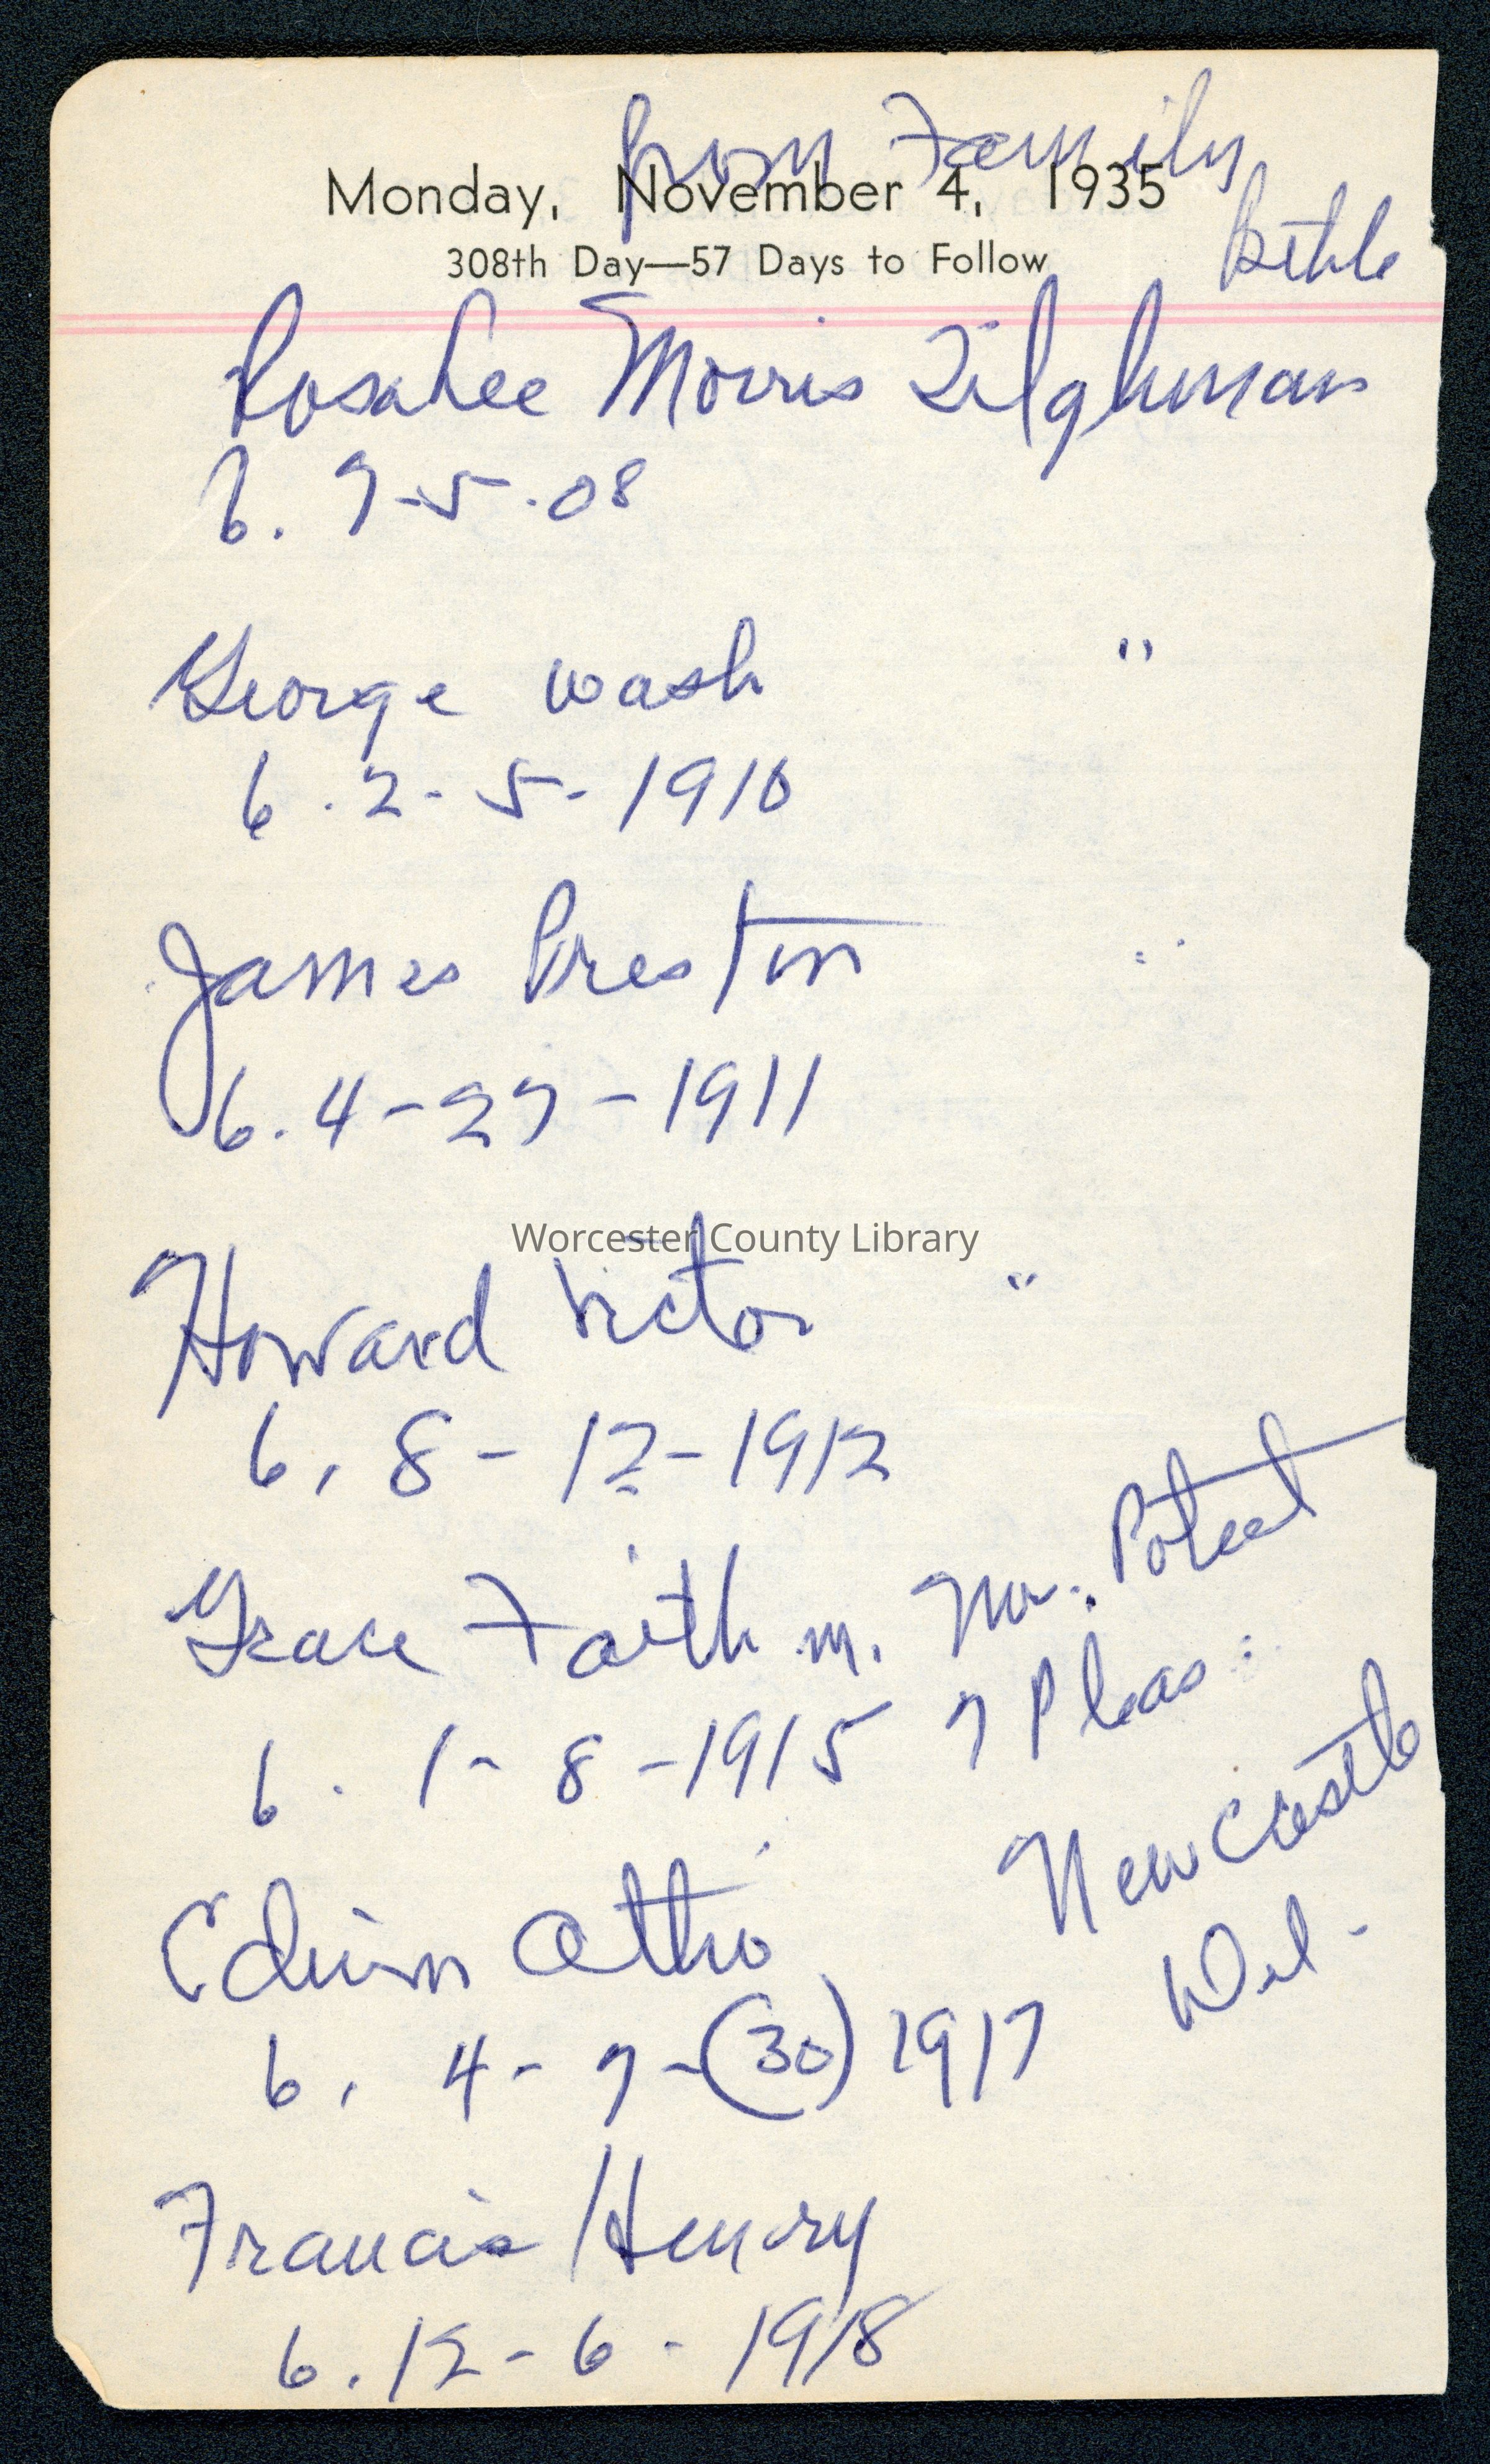 from Family
Monday, November 4, 1935
Bible
308th Day—57 Days to Follow
Rosalee Morris Tilghman
b. 7-5-08
George Wash "
b. 2-5-1910
James Preston "
b. 4-27-1911
Worcester County Library
Howard Victor "
b. 8-12-1912
Grace Faith m. Mr. Poteet
b. 1-8-1915 7 Pleas.
New Castle
Edwin Otho
Del.
b. 4-7-(30) 1917
Francis Henry
b. 12-6-1918